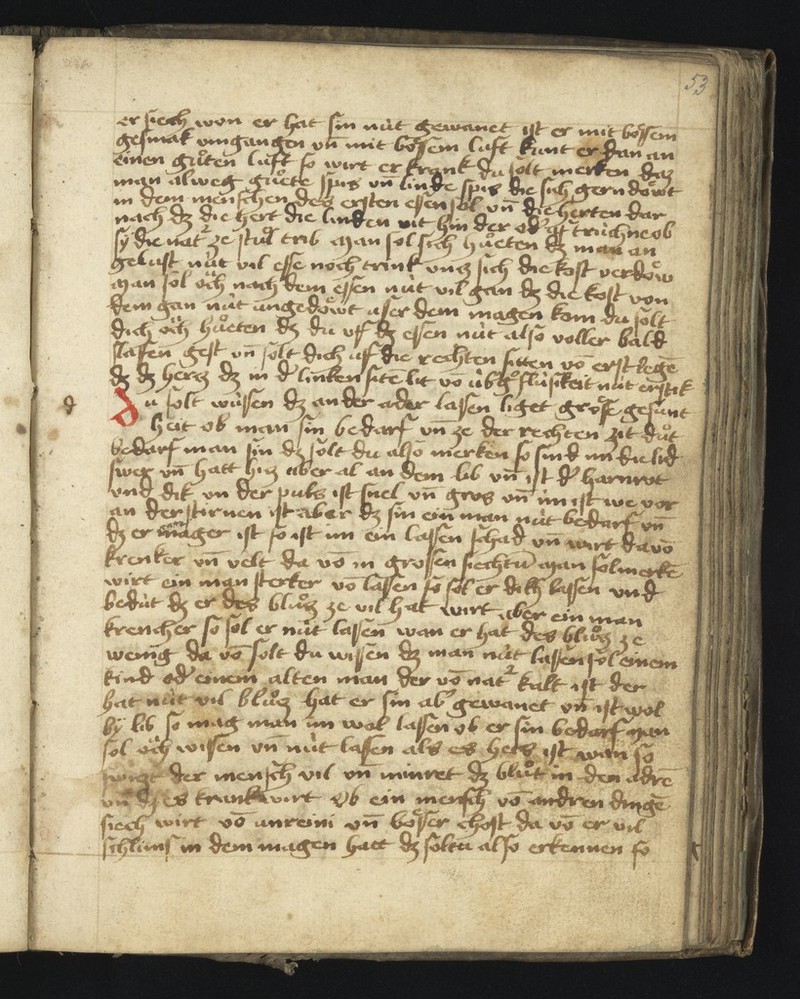 53
er siech won er hat sin nùt gewanet ist er mit bôssem
gesmak umgangen vn̄ mit bôssem luft kunt er dan an
einen gůten luft so wirt er krank du solt merken daz
man alweg gůete spis vn̄ linde spis die sich gern dôwt
in dem menschen des ersten essen sol vn̄ die herten dar
nach dz die hert die linden vit hin der od' uff truchne ob
sy die nat² ze stůl trib Man sol sich hůeten dz man an
gelust nùt vil esse noch trink vncz sich die kost verdôw
Man sol ôch nach dem essen nùt vil gan dz die kost von
dem gan nùt ungedôwt usser dem magen kom du solt
dich ôch hůeten dz du uff dz essen nùt also voller bald
slaffen gest vn̄ solt dich uff die rechten sitten vō erst legē
dz dz hercz dz in d' linken sitē lit vō ùb'flùsikeit nùt erstik
d
Du solt wùssen dz an der ader lassen liget grosse gesunt
heit ob man sin bedarf vn̄ ze der rechten zit důt
bedarf man sin dz solt du also merken so sind im die lid
swer vn̄ hatt hicz uber al an dem lib vn̄ ist d' harn rot
vnd dik vn der puls ist snel vn̄ gros vn̄ im ist we vor
an der stirnen ist aber dz sin ein man nùt bedarf vn̄
dz er mager ist so ist im ein lassen schad vn̄ wirt da vō
krenker vn̄ velt da vō in grossen siechtū Man sol merkē
wirt ein man sterker vō lassen so sol er dikh lassen vnd
bedùt dz er des blůcz ze vil hat wirt aber ein man
krencher so sol er nùt lassen wan er hat des blůcz ze
wenig da vō solt du wissen dz man nùt lassen sol einem
kind od' einem alten man der vō nat² kalt ist der
hat nùt vil blůcz hat er sin ab' gewanet vn̄ ist wol
by lib so mag man im wol lassen ob er sin bedarf Man
sol ôch wissen vn̄ nùt lassen als es heis ist wan so
swizt der mensch vil vn̄ minret dz blůt in den adrē
vn̄ dz es krank wirt Ob ein mensch vō andren dingē
siech wirt vō unreini vn̄ bôsser chost da vō er vil
schlims in dem magen hatt dz soltu also erkennen so